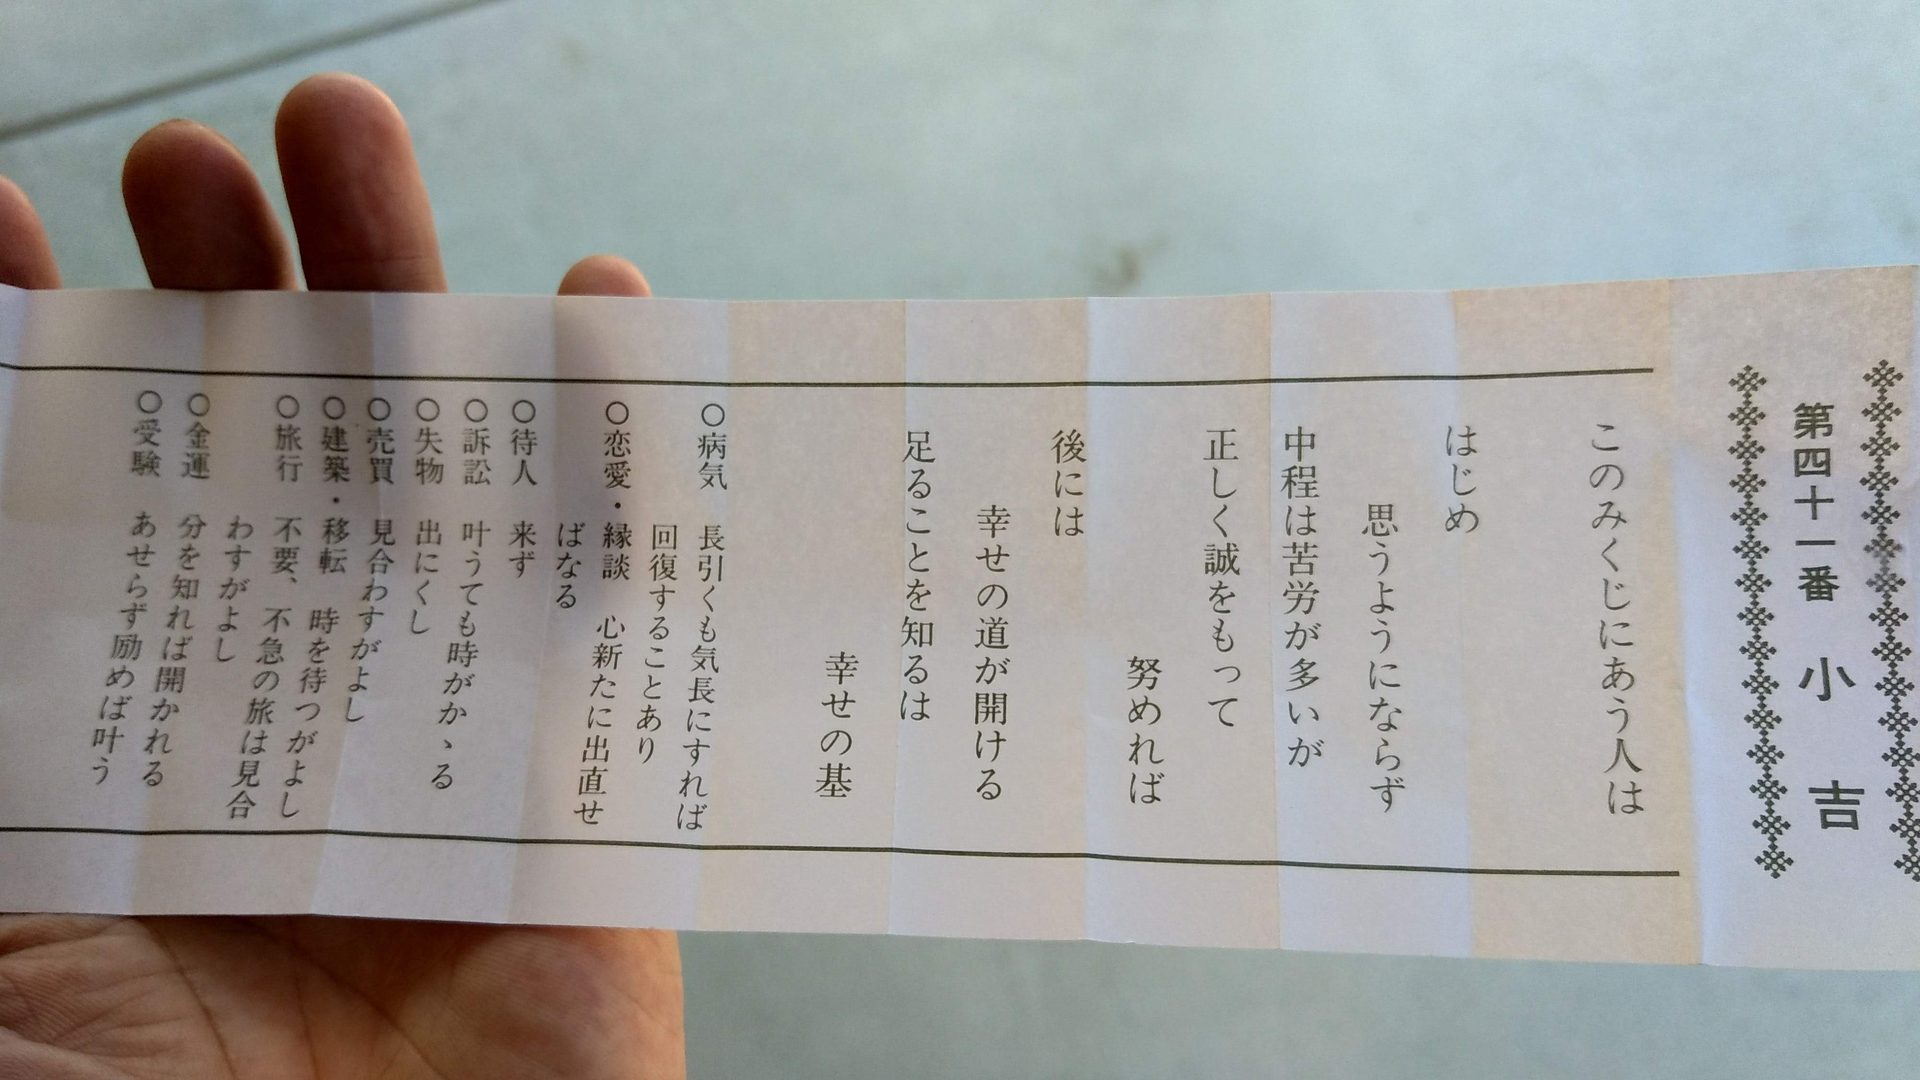 第四十一番 小吉
このみくじにあう人は
はじめ
思うようにならず
中程は苦労が多いが
正しく誠をもって
努めれば
後には
幸せの道が開ける
足ることを知るは
幸せの基
○病気 長引くも気長にすれば
回復することあり
○恋愛・縁談 心新たに出直せ
ばなる
○待人 来ず
○訴訟 叶うても時がかゝる
○失物 出にくし
○売買 見合わすがよし
○建築・移転 時を待つがよし
○旅行 不要、不急の旅は見合
わすがよし
○金運 分を知れば開かれる
○受験 あせらず励めば叶う